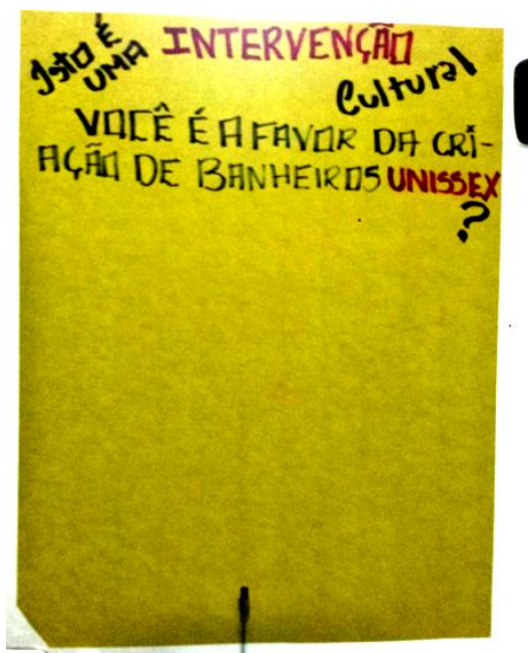 Isto É UMA INTERVENÇÃO
Cultural
VOCÊ É A FAVOR DA CRI-
AÇÃO DE BANHEIROS UNISSEX
?